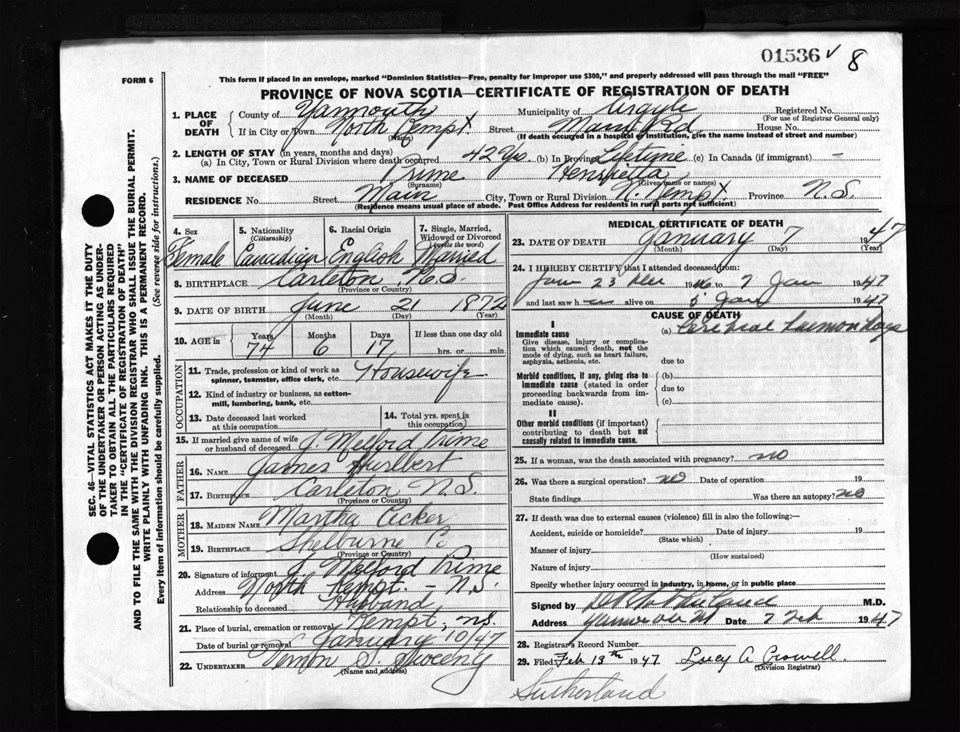 01536 ✓ 8
FORM 6
This form if placed in an envelope, marked "Dominion Statistics—Free, penalty for improper use $300," and properly addressed will pass through the mail "FREE"
PROVINCE OF NOVA SCOTIA—CERTIFICATE OF REGISTRATION OF DEATH
SEC. 46—VITAL STATISTICS ACT MAKES IT THE DUTY
OF THE UNDERTAKER OR PERSON ACTING AS UNDER-
TAKER "TO OBTAIN ALL THE PARTICULARS REQUIRED
IN THE "CERTIFICATE OF REGISTRATION OF DEATH"
AND TO FILE THE SAME WITH THE DIVISION REGISTRAR WHO SHALL ISSUE THE BURIAL PERMIT.
WRITE PLAINLY WITH UNFADING INK. THIS IS A PERMANENT RECORD.
Every item of information should be carefully supplied. (See reverse side for instructions.)
1. PLACE OF DEATH County of Yarmouth Municipality of Argyle Registered No.
(For use of Registrar General only)
If in City or Town North Kempt Street Main Rd. House No.
(Name) (If death occurred in a hospital or institution, give the name instead of street and number)
2. LENGTH OF STAY (in years, months and days)
(a) In City, Town or Rural Division where death occurred 42 Yrs (b) In Province Lifetime (c) In Canada (if immigrant) -
3. NAME OF DECEASED Prime Henrietta
(Surname) (Given name or names)
RESIDENCE No. Street Main City, Town or Rural Division N. Kempt Province N.S.
(Residence means usual place of abode. Post Office Address for residents in rural parts not sufficient)
4. Sex Female
5. Nationality (Citizenship) Canadian
6. Racial Origin English
7. Single, Married, Widowed or Divorced (write the word) Married
8. BIRTHPLACE Carleton N.S.
(Province or Country)
9. DATE OF BIRTH June 21 1872
(Month) (Day) (Year)
10. AGE in Years 74 Months 6 Days 17 If less than one day old hrs. or min
OCCUPATION
11. Trade, profession or kind of work as spinner, teamster, office clerk, etc. Housewife
12. Kind of industry or business, as cotton-mill, lumbering, bank, etc.
13. Date deceased last worked at this occupation
14. Total yrs. spent in this occupation
15. If married give name of wife or husband of deceased J. Melford Prime
FATHER
16. NAME James Hurlbert
17. Birthplace Carleton N.S.
(Province or Country)
MOTHER
18. MAIDEN NAME Martha
19. BIRTHPLACE Shelburne Co
(Province or Country)
20. Signature of informant J. Melford Prime
Address North Kempt - N.S
Relationship to deceased Husband
21. Place of burial, cremation or removal Kempt, N.S.
Date of burial or removal January 10/47
22. UNDERTAKER Vernon S. Sweeny
(Name and address)
MEDICAL CERTIFICATE OF DEATH
23. DATE OF DEATH January 7 1947
(Month) (Day) (Year)
24. I HEREBY CERTIFY that I attended deceased from
23 Dec 1946 to 7 Jan 1947
and last saw h alive on 5 Jan 1947
CAUSE OF DEATH
I
Immediate cause
Give disease, injury or complication which caused death, not the mode of dying, such as heart failure, asphyxia, asthenia, etc.
(a) Cerebral Hemorrhage
due to
Morbid conditions, if any, giving rise to immediate cause (stated in order proceeding backwards from immediate cause).
(b)
due to
(c)
II
Other morbid conditions (if important) contributing to death but not causally related to immediate cause.
25. If a woman, was the death associated with pregnancy? no
26. Was there a surgical operation? no Date of operation 19
State findings Was there an autopsy? no
27. If death was due to external causes (violence) fill in also the following:—
Accident, suicide or homicide? Date of injury 19
(State which)
Manner of injury
(How sustained)
Nature of injury
Specify whether injury occurred in industry, in home, or in public place
Signed by M.D.
Address Date 2 Feb 1947
28. Registrar's Record Number
29. Filed Feb 13th 1947 Lucy A Crowell.
(Division Registrar)
Sutherland